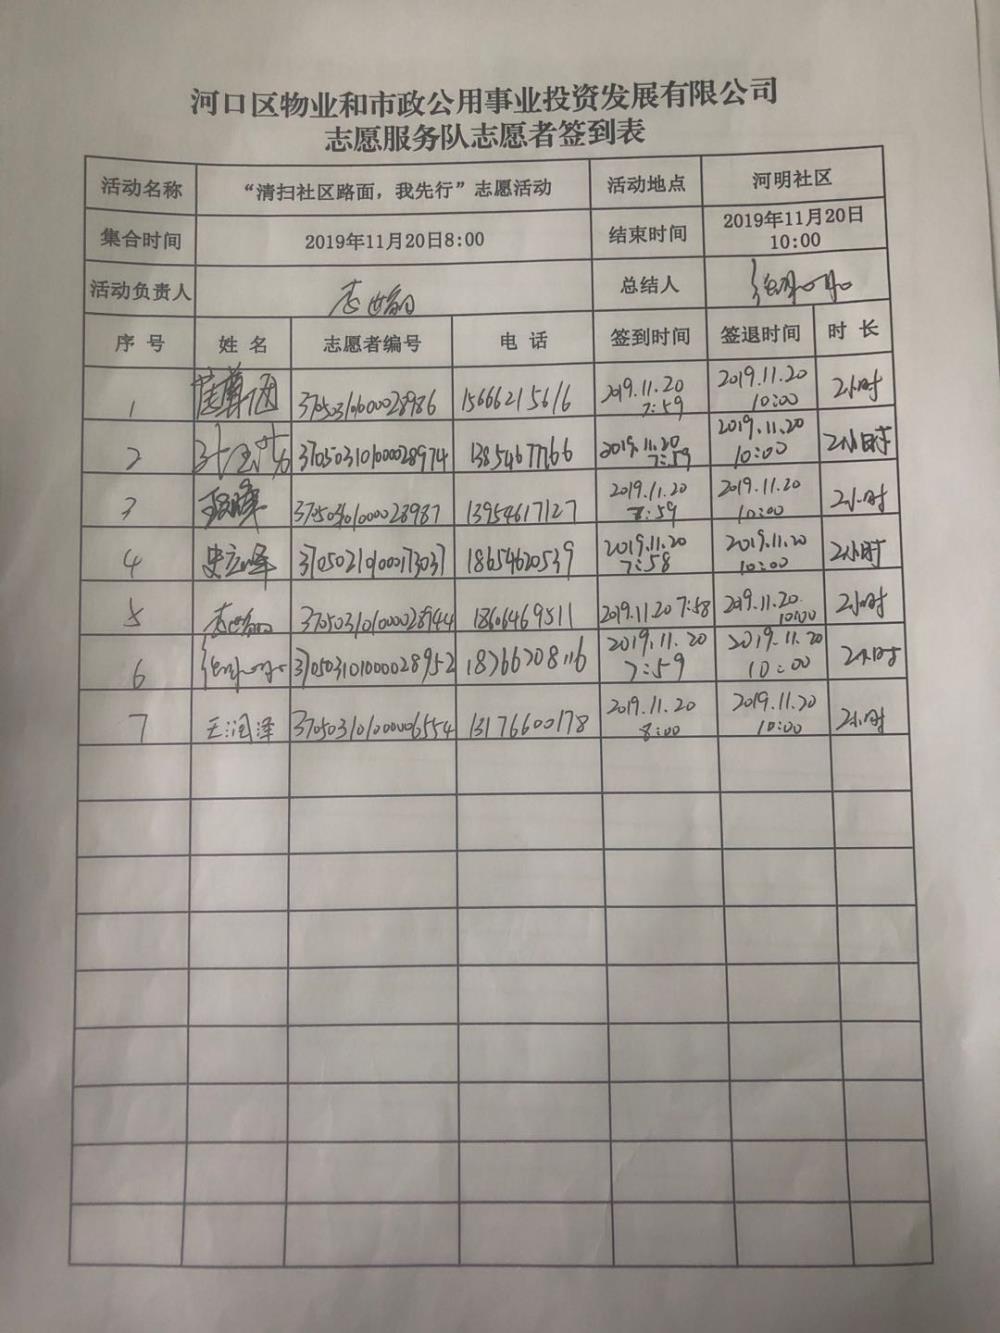 河口区物业和市政公用事业投资发展有限公司
志愿服务队志愿者签到表
活动名称 “清扫社区路面，我先行”志愿活动 活动地点 河明社区
集合时间 2019年11月20日8:00 结束时间 2019年11月20日
10:00
活动负责人 总结人
序 号 姓 名 志愿者编号 电 话 签到时间 签退时间 时 长
1 15666215616 2019.11.20 2019.11.20 2小时
7:59 10:00
2 370503101000028974 13854677766 2019.11.20 2019.11.20 2小时
7:59 10:00
3 13954617127 2019.11.20 2019.11.20 2小时
10:00
4 18654620539 2019.11.20 2019.11.20 2小时
7:58 10:00
5 370503101000028944 18606469511 2019.11.20 7:58 2019.11.20 2小时
10:00
6 370503101000028952 18766708116 2019.11.20 2019.11.20 2小时
7:59 10:00
7 王润泽 370503101000006554 13176600178 2019.11.20 2019.11.20 2小时
8:00 10:00